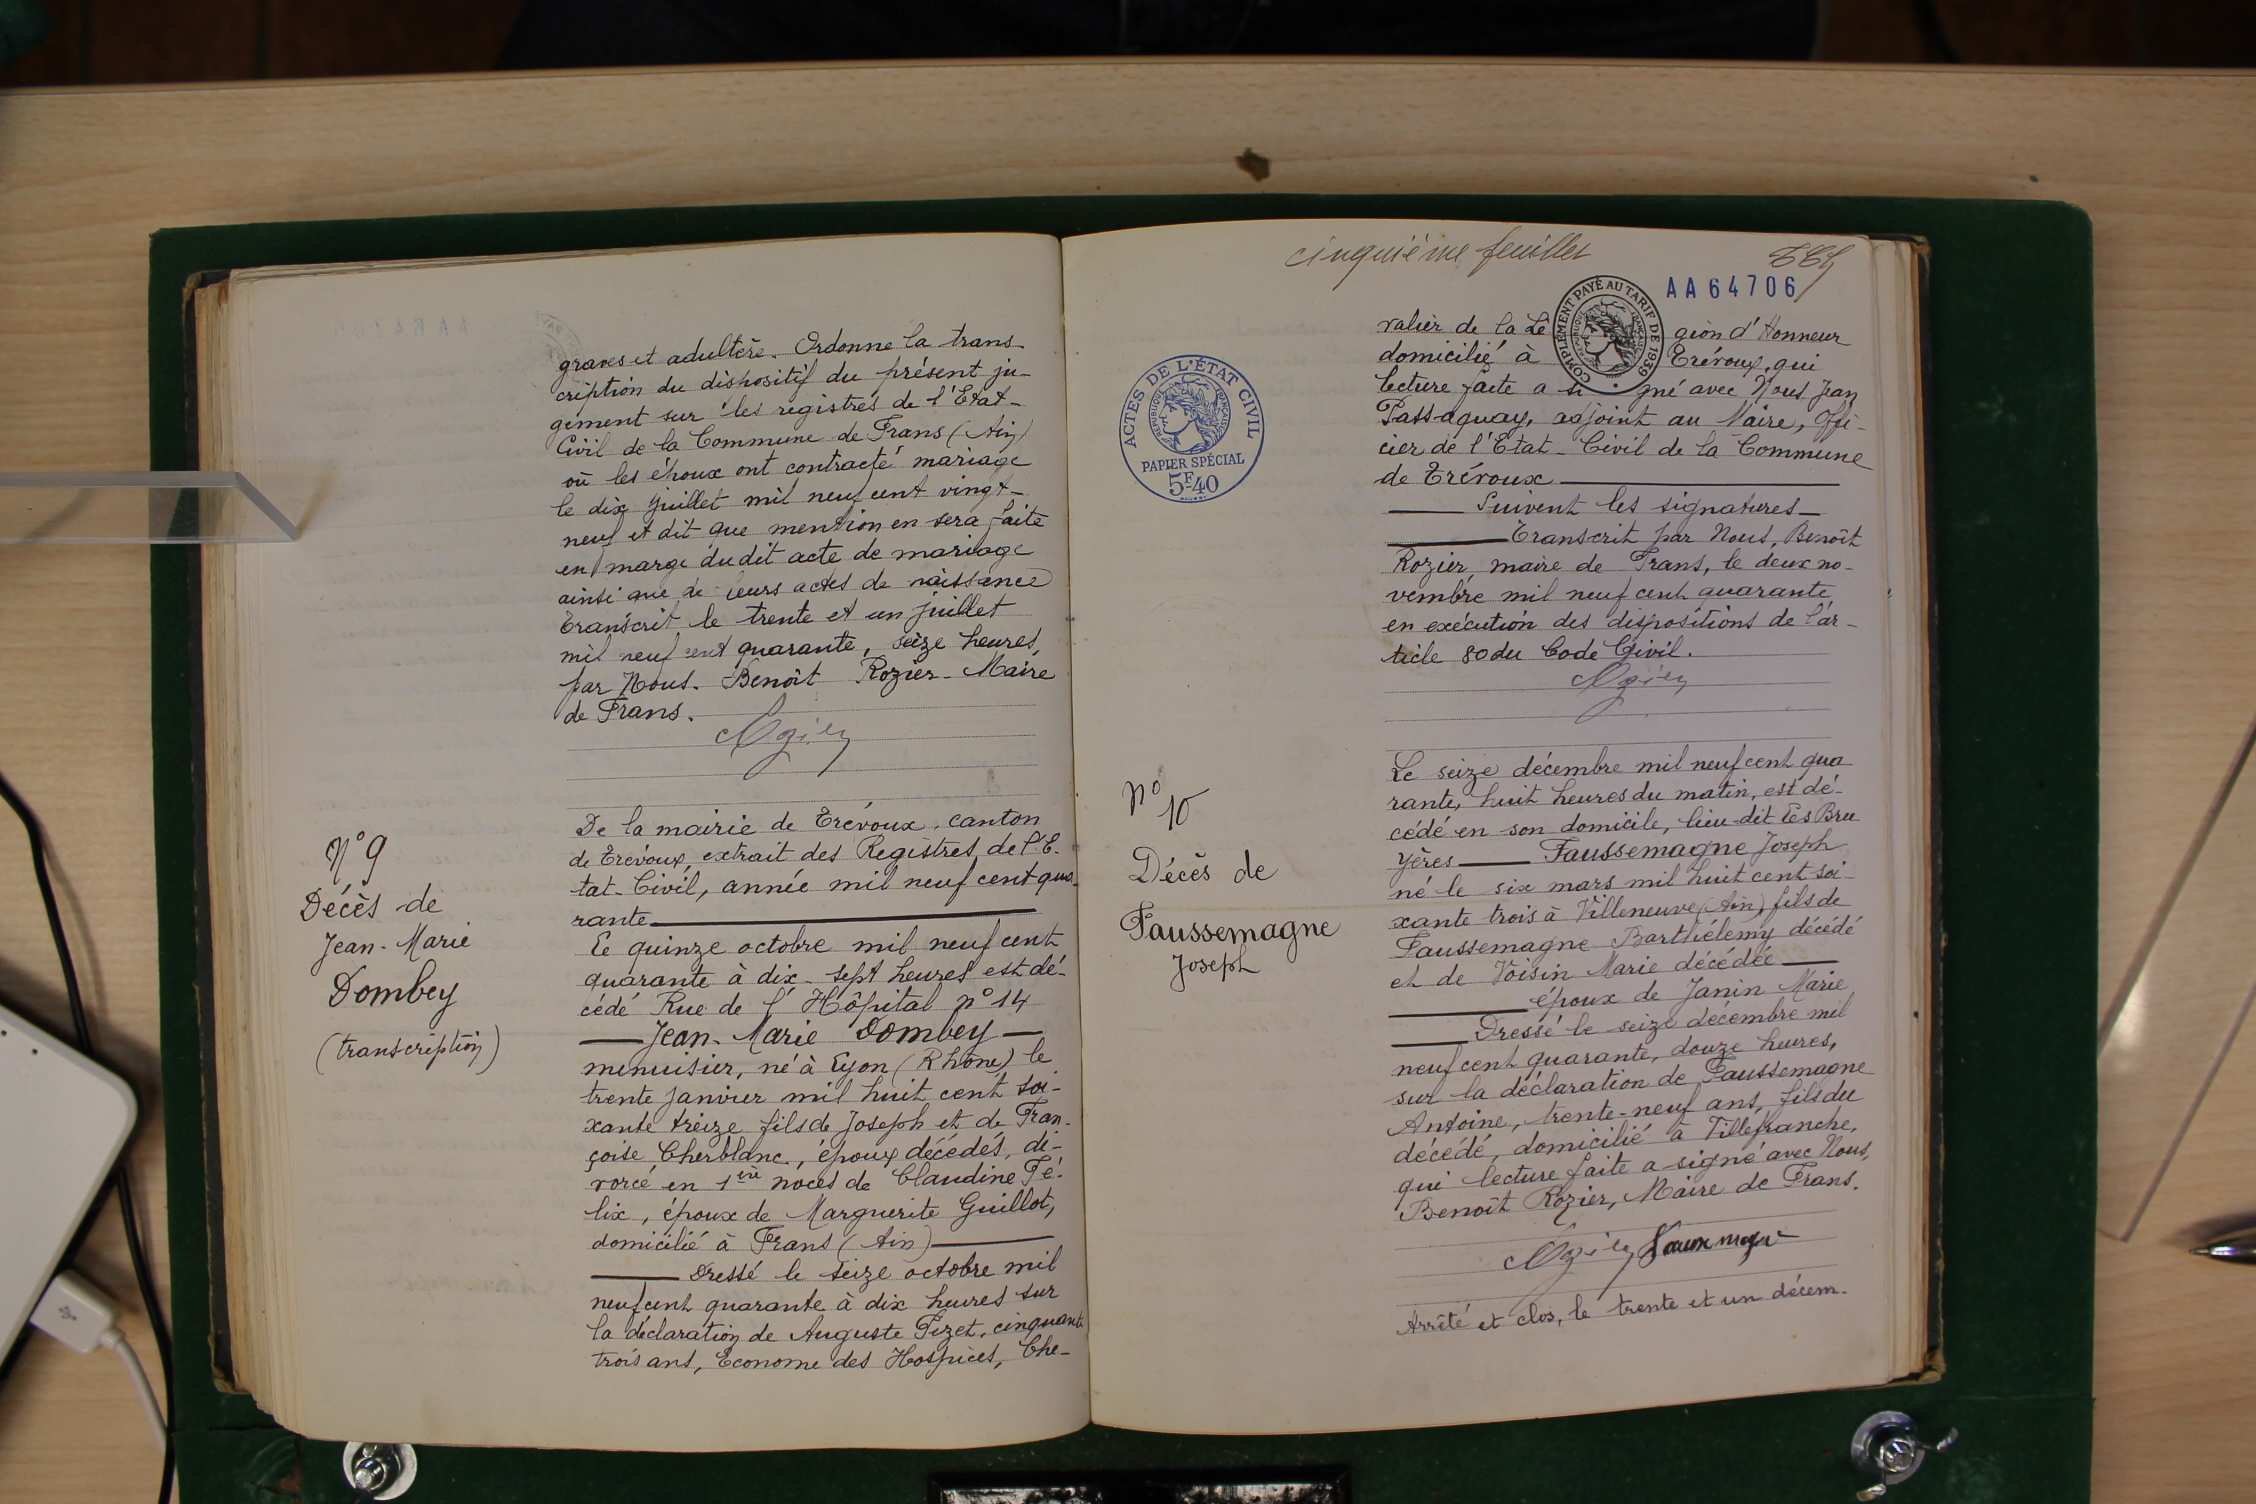 graves et adultère. Ordonne la trans-
cription du dispositif du présent ju-
gement sur les registres de l'Etat-
Civil de la Commune de Frans (Ain)
où les époux ont contracté mariage
le dix Juillet mil neuf cent vingt-
neuf et dit que mention en sera faite
en marge dudit acte de mariage
ainsi que de leurs actes de naissance
Transcrit le trente et un juillet
mil neuf cent quarante, seize heures,
par Nous. Benoît Rozier - Maire
de Frans.
N° 9
Décès de
Jean-Marie
Dombey
(transcription)
De la mairie de Trévoux, canton
de Trévoux, extrait des Registres de l'E-
tat-Civil, année mil neuf cent qua-
rante
Le quinze octobre mil neuf cent
quarante à dix-sept heures est dé-
cédé Rue de l'Hôpital n° 14
Jean-Marie Dombey
menuisier, né à Lyon (Rhône) le
trente Janvier mil huit cent soi-
xante treize fils de Joseph et de Fran-
çoise Cherblanc, époux décédés, di-
vorcé en 1ère noces de Claudine Fé-
lix, époux de Marguerite Guillot,
domicilié à Frans (Ain)
Dressé le seize octobre mil
neuf cent quarante à dix heures sur
la déclaration de Auguste Pizet, cinquante
trois ans, Econome des Hospices, Che-
cinquième feuillet
AA 64706
COMPLÉMENT PAYÉ AU TARIF DE 1939
ACTES DE L'ÉTAT CIVIL
RÉPUBLIQUE FRANÇAISE
PAPIER SPÉCIAL
5F40
valier de la Lé gion d'Honneur
domicilié à Trévoux, qui
lecture faite a si gné avec Nous Jean
Passaquay, adjoint au Maire, Offi-
cier de l'Etat-Civil de la Commune
de Trévoux
Suivent les signatures
Transcrit par Nous, Benoît
Rozier, maire de Frans, le deux no-
vembre mil neuf cent quarante
en exécution des dispositions de l'ar-
ticle 80 du Code Civil.
N° 10
Décès de
Faussemagne
Joseph
Le seize décembre mil neuf cent qua
rante, huit heures du matin, est dé-
cédé en son domicile, lieu-dit Les Bru
yères Faussemagne Joseph
né le six mars mil huit cent soi-
xante trois à Villeneuve (Ain) fils de
Faussemagne Barthélemy décédé
et de Voisin Marie décédée
époux de Janin Marie
Dressé le seize décembre mil
neuf cent quarante, douze heures,
sur la déclaration de Faussemagne
Antoine, trente-neuf ans, fils du
décédé, domicilié à Villefranche,
qui lecture faite a signé avec Nous,
Benoît Rozier, Maire de Frans.
Arrêté et clos, le trente et un décem-